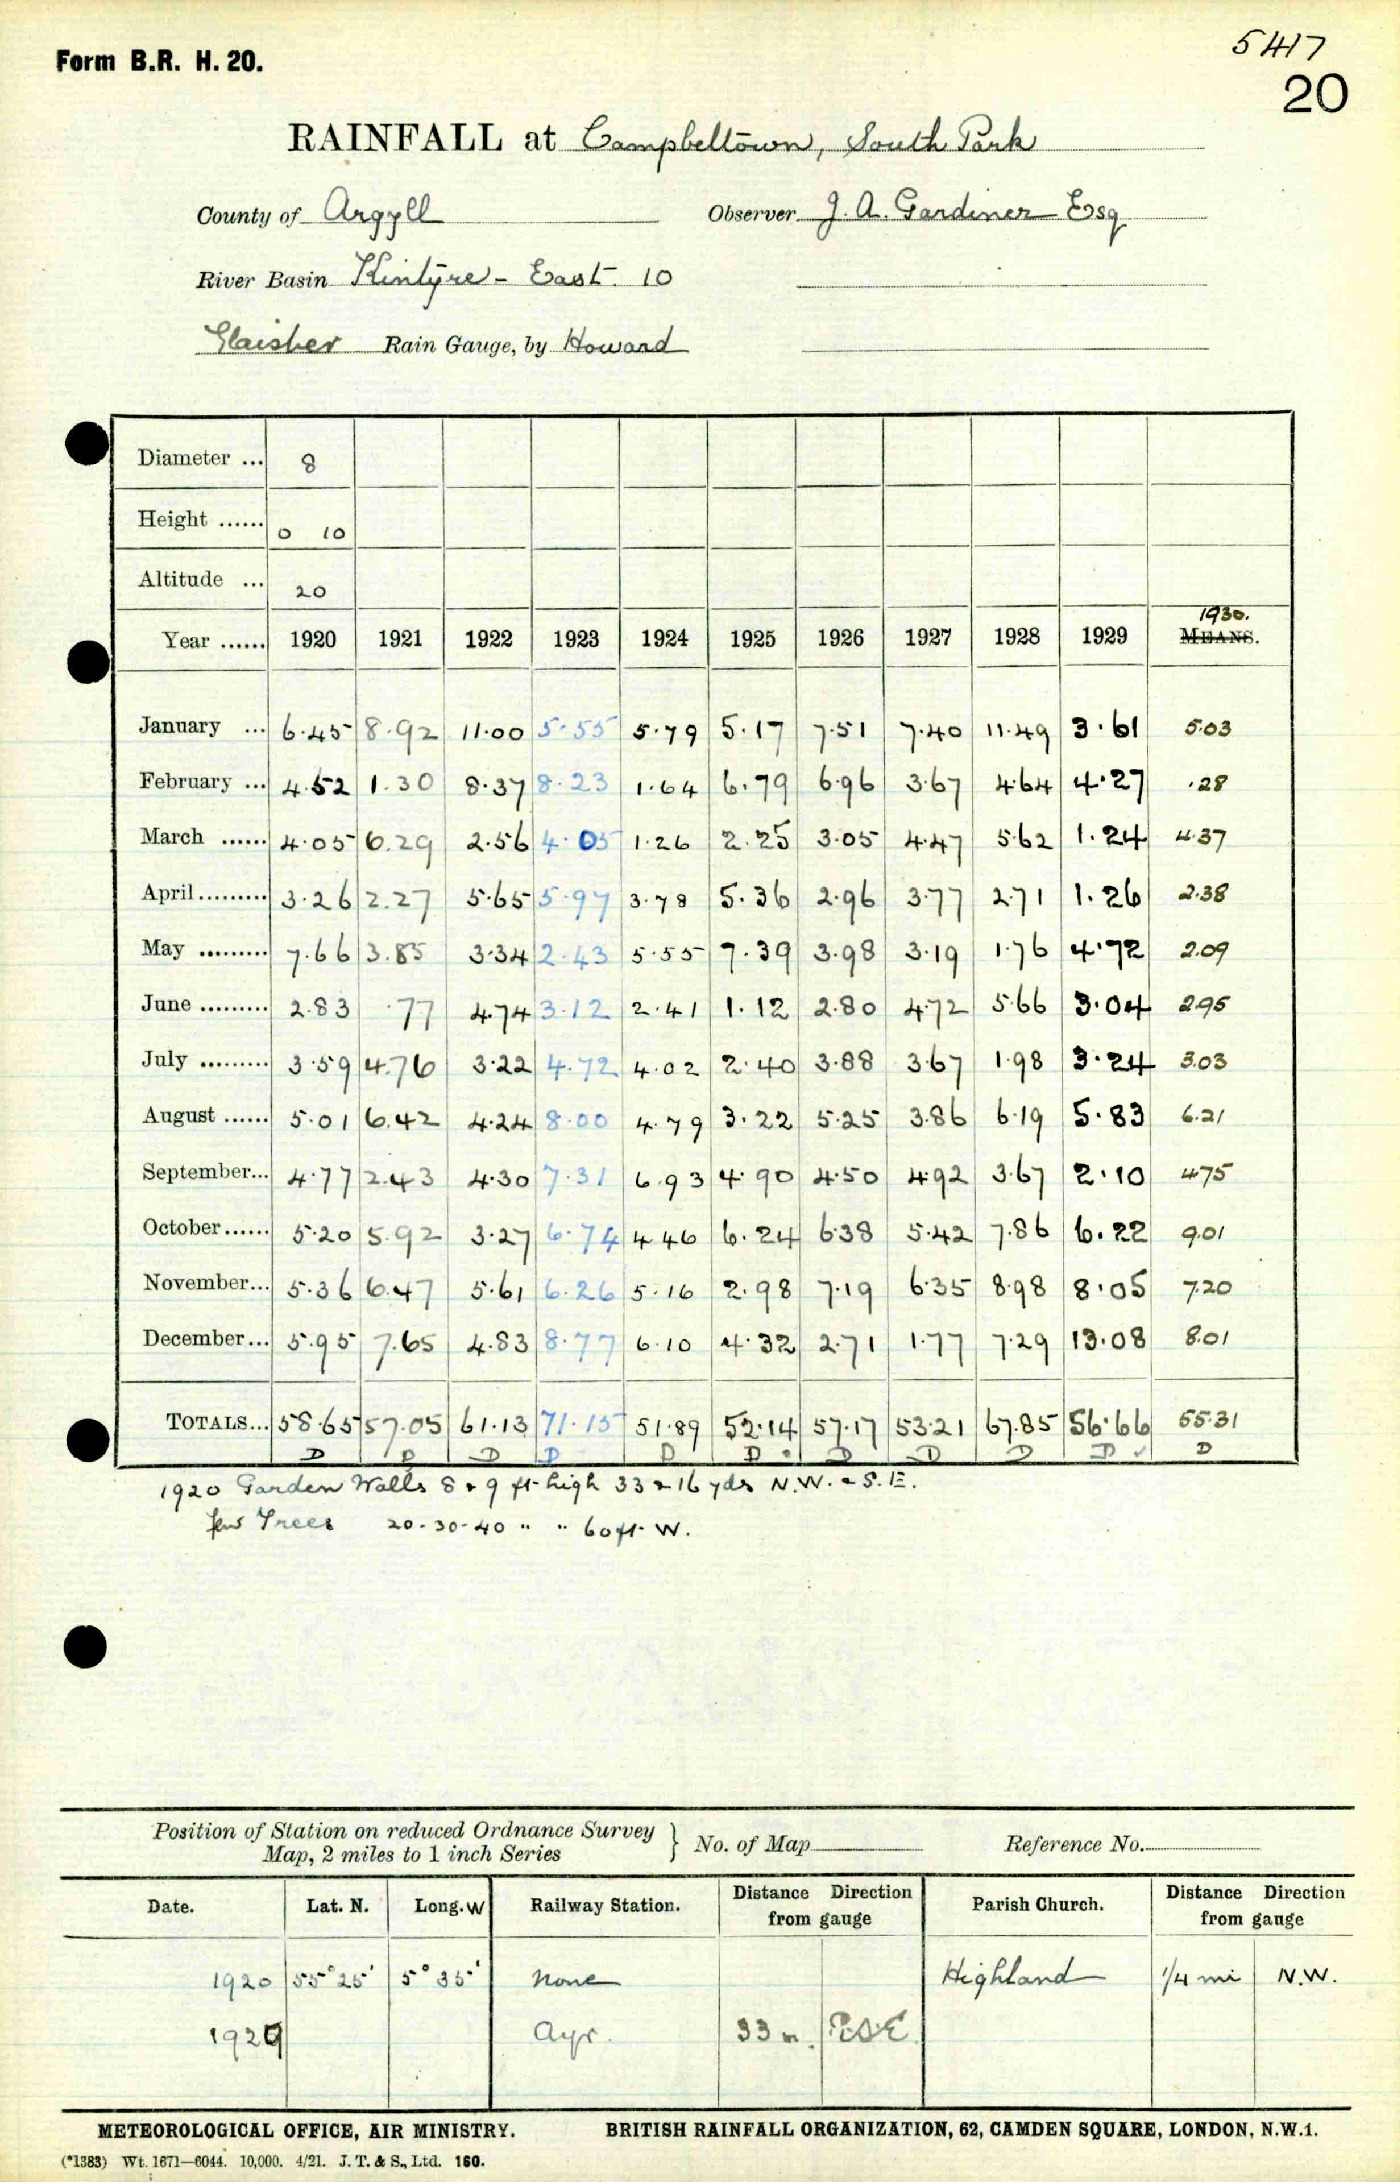 Form B.R. H. 20.
5417
20
RAINFALL at Campbeltown, South Park
County of Argyll Observer J. A. Gardiner Esq
River Basin Kintyre - East. 10
Glaisher Rain Gauge, by Howard
Diameter ... 8
Height ...... 0 10
Altitude ... 20
1930.
Year ...... 1920 1921 1922 1923 1924 1925 1926 1927 1928 1929 MEANS.
January ... 6.45 8.92 11.00 5.55 5.79 5.17 7.51 7.40 11.49 3.61 5.03
February ... 4.52 1.30 8.37 8.23 1.64 6.79 6.96 3.67 4.64 4.27 .28
March ...... 4.05 6.29 2.56 4.05 1.26 2.25 3.05 4.47 5.62 1.24 4.37
April......... 3.26 2.27 5.65 5.97 3.78 5.36 2.96 3.77 2.71 1.26 2.38
May ......... 7.66 3.85 3.34 2.43 5.55 7.39 3.98 3.19 1.76 4.72 2.09
June ......... 2.83 .77 4.74 3.12 2.41 1.12 2.80 4.72 5.66 3.04 2.95
July ......... 3.59 4.76 3.22 4.72 4.02 2.40 3.88 3.67 1.98 3.24 3.03
August ...... 5.01 6.42 4.24 8.00 4.79 3.22 5.25 3.86 6.19 5.83 6.21
September... 4.77 2.43 4.30 7.31 6.93 4.90 4.50 4.92 3.67 2.10 4.75
October...... 5.20 5.92 3.27 6.74 4.46 6.24 6.38 5.42 7.86 6.22 9.01
November... 5.36 6.47 5.61 6.26 5.16 2.98 7.19 6.35 8.98 8.05 7.20
December... 5.95 7.65 4.83 8.77 6.10 4.32 2.71 1.77 7.29 13.08 8.01
TOTALS... 58.65 57.05 61.13 71.15 51.89 52.14 57.17 53.21 67.85 56.66 55.31
D D D D D D D D D D ✓ D
1920 Garden Walls 8 & 9 ft high 33 & 16 yds N.W. & S.E.
few Trees 20-30-40 " " 60 ft. W.
Position of Station on reduced Ordnance Survey
Map, 2 miles to 1 inch Series } No. of Map Reference No.
Date. Lat. N. Long. W Railway Station. Distance Direction from gauge Parish Church. Distance Direction from gauge
1920 55°25' 5°35' none Highland 1/4 mi N.W.
1929 Ayr. 33 m.
METEOROLOGICAL OFFICE, AIR MINISTRY. BRITISH RAINFALL ORGANIZATION, 62, CAMDEN SQUARE, LONDON, N.W.1.
(*1383) Wt. 1671—6044. 10,000. 4/21. J. T. & S., Ltd. 160.